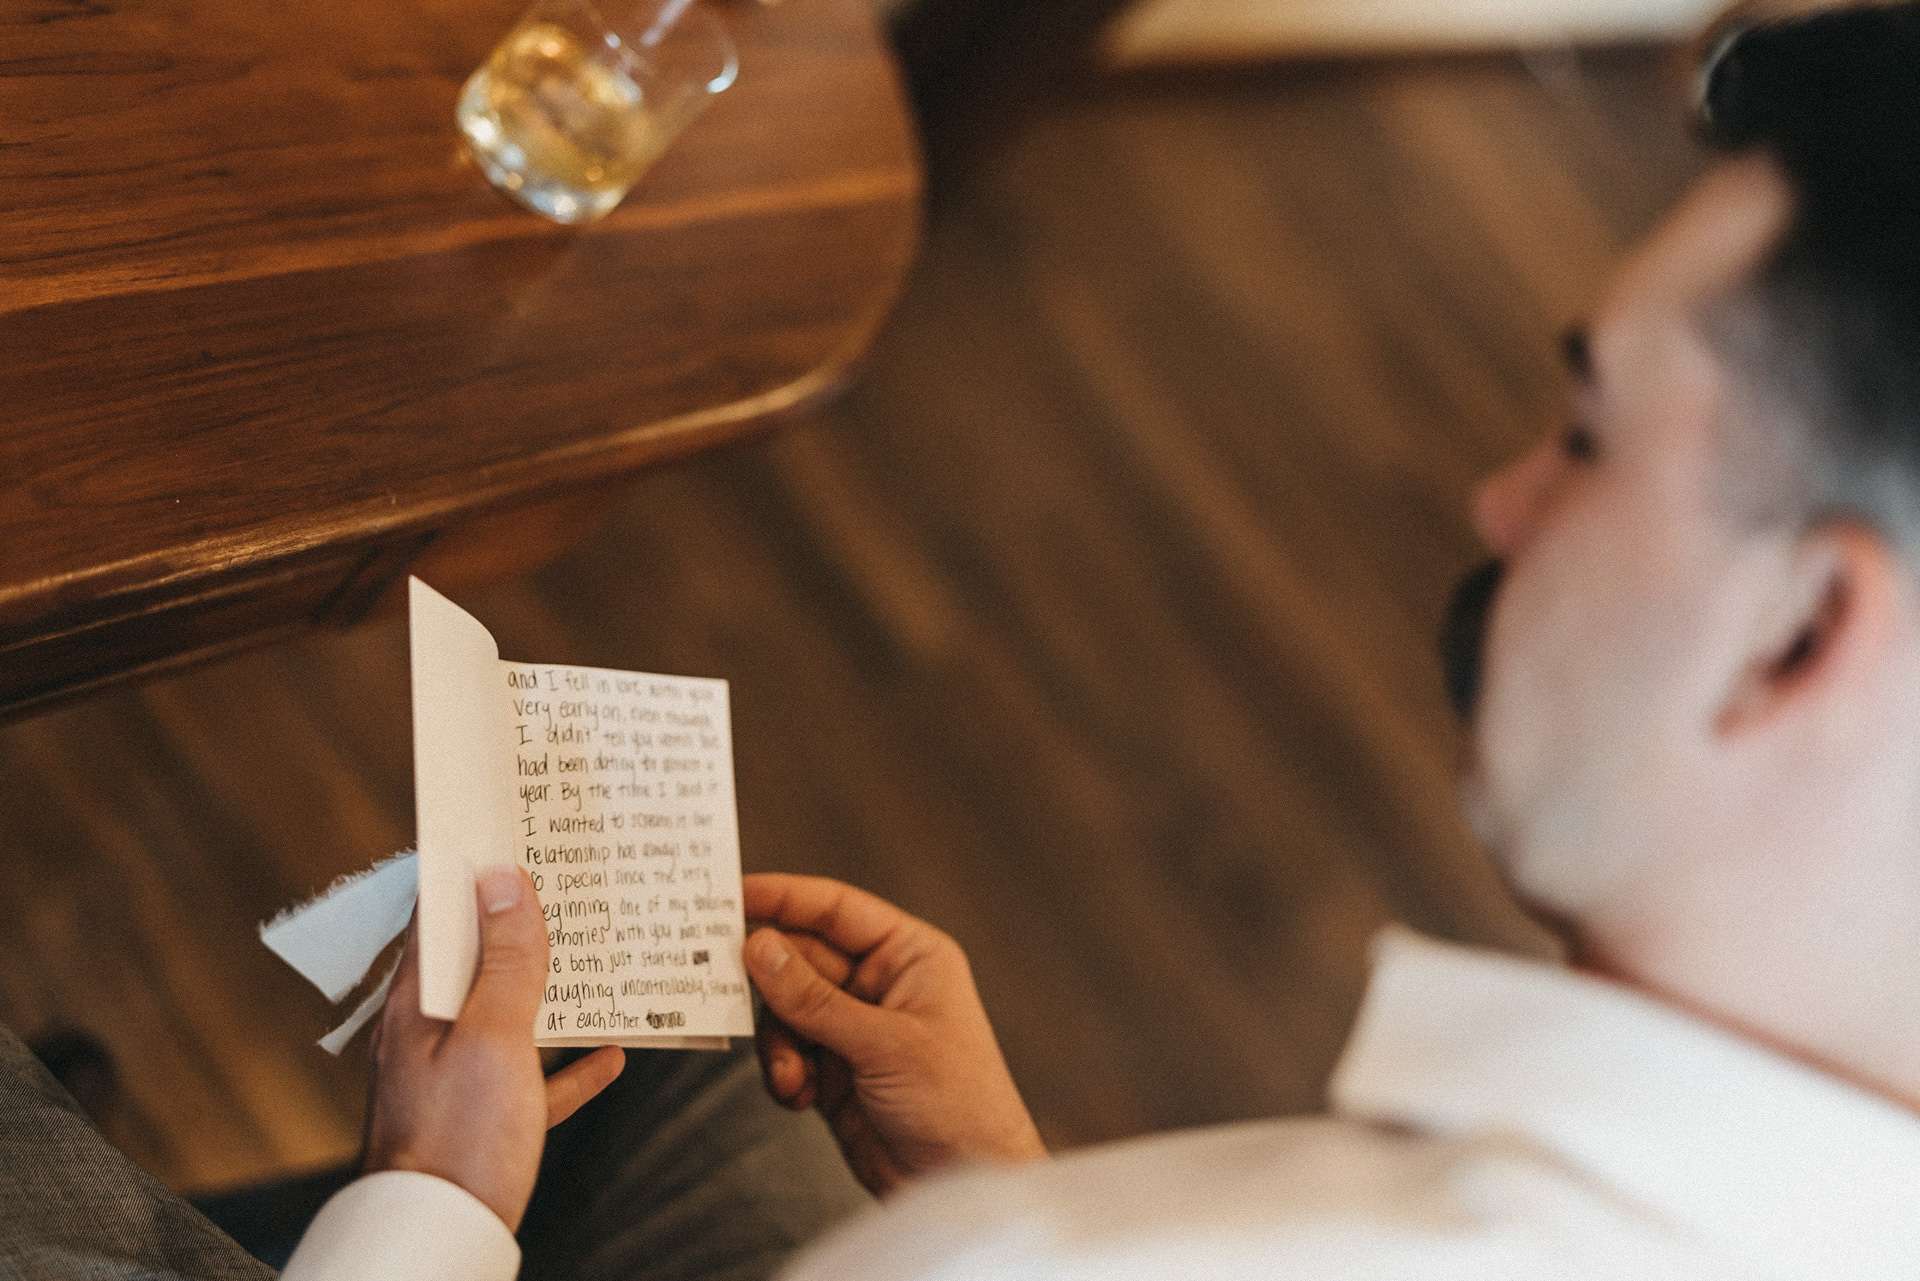 and I fell in love with you
very early on, even though
I didn't tell you until we
had been dating for almost a
year. By the time I said it
I wanted to scream it. Our
relationship has always felt
so special since the very
eginning one of my favorite
emories with you was when
e both just started
laughing uncontrollably,
at each other.